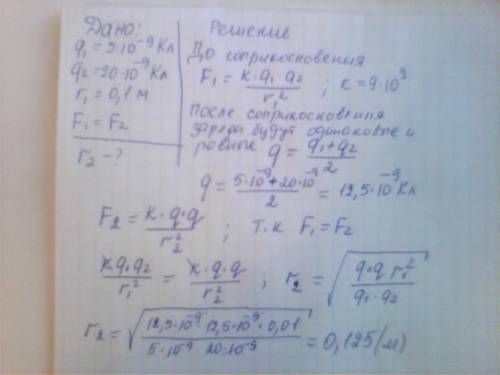 Дано:
q₁ = 5·10⁻⁹ Кл
q₂ = 20·10⁻⁹ Кл
r₁ = 0,1 м
F₁ = F₂
r₂ - ?
Решение
До соприкосновения
F₁ = к·q₁·q₂ / r₁² ; к = 9·10⁹
После соприкосновения
заряды будут одинаковые и
равные q = q₁+q₂ / 2
q = 5·10⁻⁹+20·10⁻⁹ / 2 = 12,5·10⁻⁹ Кл
F₂ = к·q·q / r₂² ; т.к F₁ = F₂
к q₁ q₂ / r₁² = к·q·q / r₂² ; r₂ = √(q·q r₁² / q₁·q₂)
r₂ = √(12,5·10⁻⁹·12,5·10⁻⁹·0,01 / 5·10⁻⁹·20·10⁻⁹) = 0,125(м)